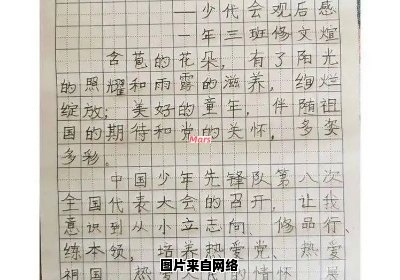 ——少代会观后感
一年三班修文煊
含苞的花朵，有了阳光
的照耀和雨露的滋养，绚烂
绽放；美好的童年，伴随祖
国的期待和党的关怀，多姿
多彩。
Mars
中国少年先锋队第八次
全国代表大会的召开，让我
意识到从小立志间、修品行、
练本领，培养热爱党、热爱
祖国、极 人民的情怀 展
图片来自网络